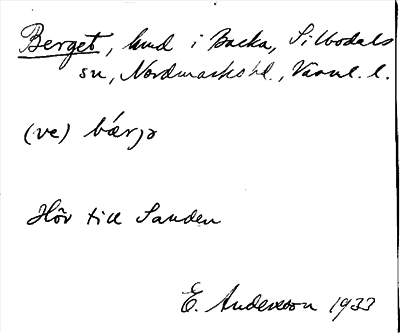 Berget, hmd i Backa, Silbodals
sn, Nordmarks hd., Värml. l.
(ve) bǽrjə
Hör till Sanden
E. Andersson 1933